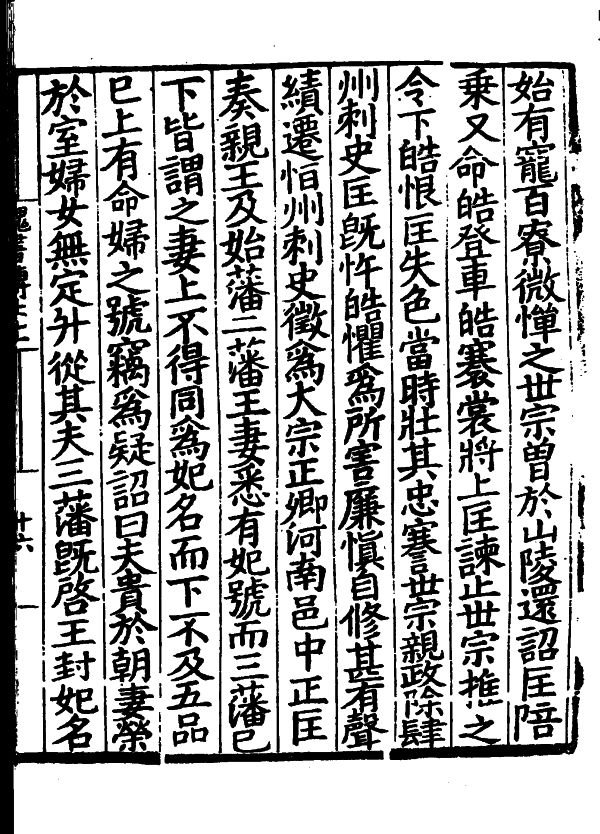 始有寵百寮微憚之世宗曽於山陵還詔匡陪
乗又命皓登車皓褰裳將上匡諫止世宗推之
令下皓恨匡失色當時壯其忠謇世宗親政除肆
州刺史匡既忤皓懼爲所害廉愼自修甚有聲
績遷恒州刺史徵爲大宗正卿河南邑中正匡
奏親王及始藩二藩王妻悉有妃號而三藩已
下皆謂之妻上不得同爲妃名而下不及五品
已上有命婦之號竊爲疑詔曰夫貴於朝妻榮
於室婦女無定升從其夫三藩既啓王封妃名
十六